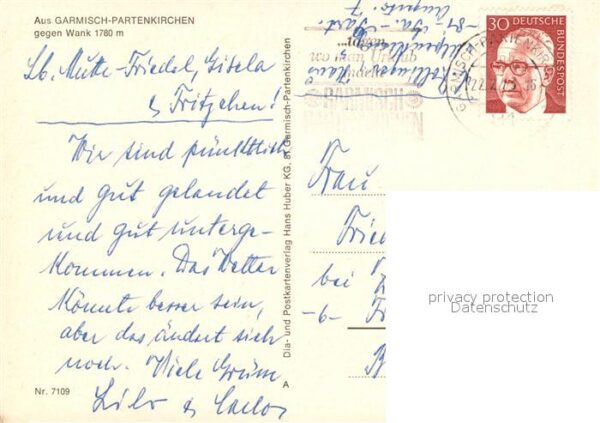 Aus GARMISCH-PARTENKIRCHEN
gegen Wank 1780 m
Lb. Mutte-Friedel, Gisela
& Fritzchen!
Wir sind pünktlich
und gut gelandet
und gut unterge-
kommen. Das Wetter
könnte besser sein,
aber das ändert sich
noch. Viele Grüße
Lilo &
Nr. 7109
A
Dia- und Postkartenverlag Hans Huber KG, 81 Garmisch-Partenkirchen
wo man Urlaub
GARMISCH
PARTENKIRCHEN
30 DEUTSCHE
BUNDESPOST
Frau
Fried
bei
-6-
privacy protection
Datenschutz